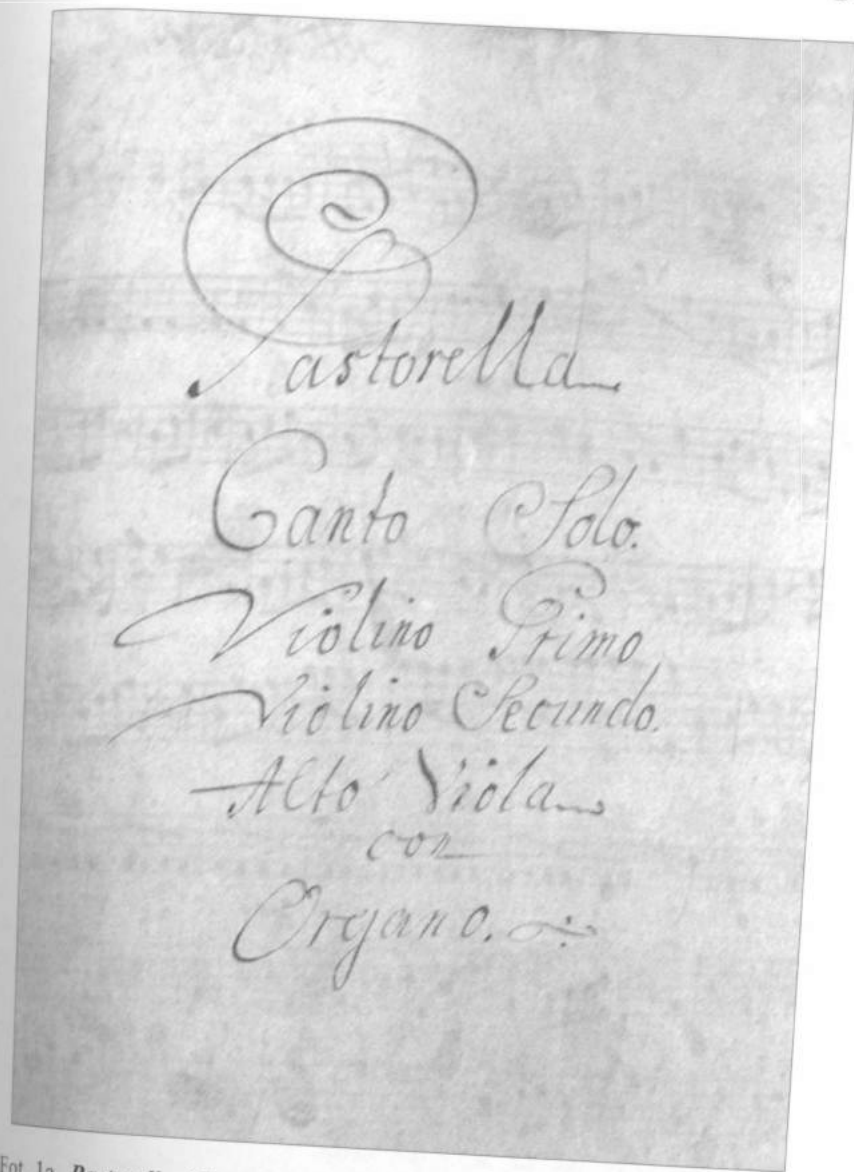 Pastorella
Canto Solo.
Violino Primo
Violino Secundo.
Alto Viola
con
Organo.
Fot. 1a.